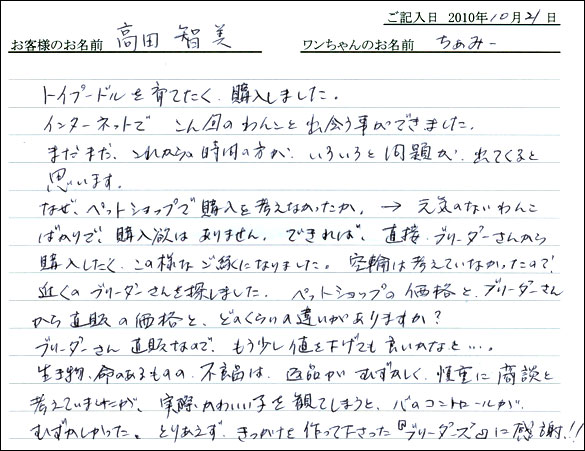 ご記入日 2010年10月21日
お客様のお名前 高田 智美 ワンちゃんのお名前 ちぁみー
トイプードルを育てたく、購入しました。
インターネットで こん回のわんこと出会う事ができました。
まだまだ、これからの時間の方が、いろいろと問題が、出てくると
思います。
なぜ、ペットショップで購入を考えなかったか。→ 元気のないわんこ
ばかりで、購入欲はありません。できれば、直接、ブリーダーさんから
購入したく、この様なご縁になりました。空輪は考えていなかったので
近くのブリーダーさんを探しました。ペットショップの価格と、ブリーダーさん
から直販の価格と、どのくらいの違いがありますか?
ブリーダーさん直販なので、もう少し値を下げても良いかなと…。
生き物、命のあるもの の不良品は、返品が むずかしく、慎重に商談と
考えていましたが、実際、かわいい子を観てしまうと、心のコントロールが
むずかしかった。とりあえず、きっかけを作って下さった『ブリーダーズ』に感謝!!